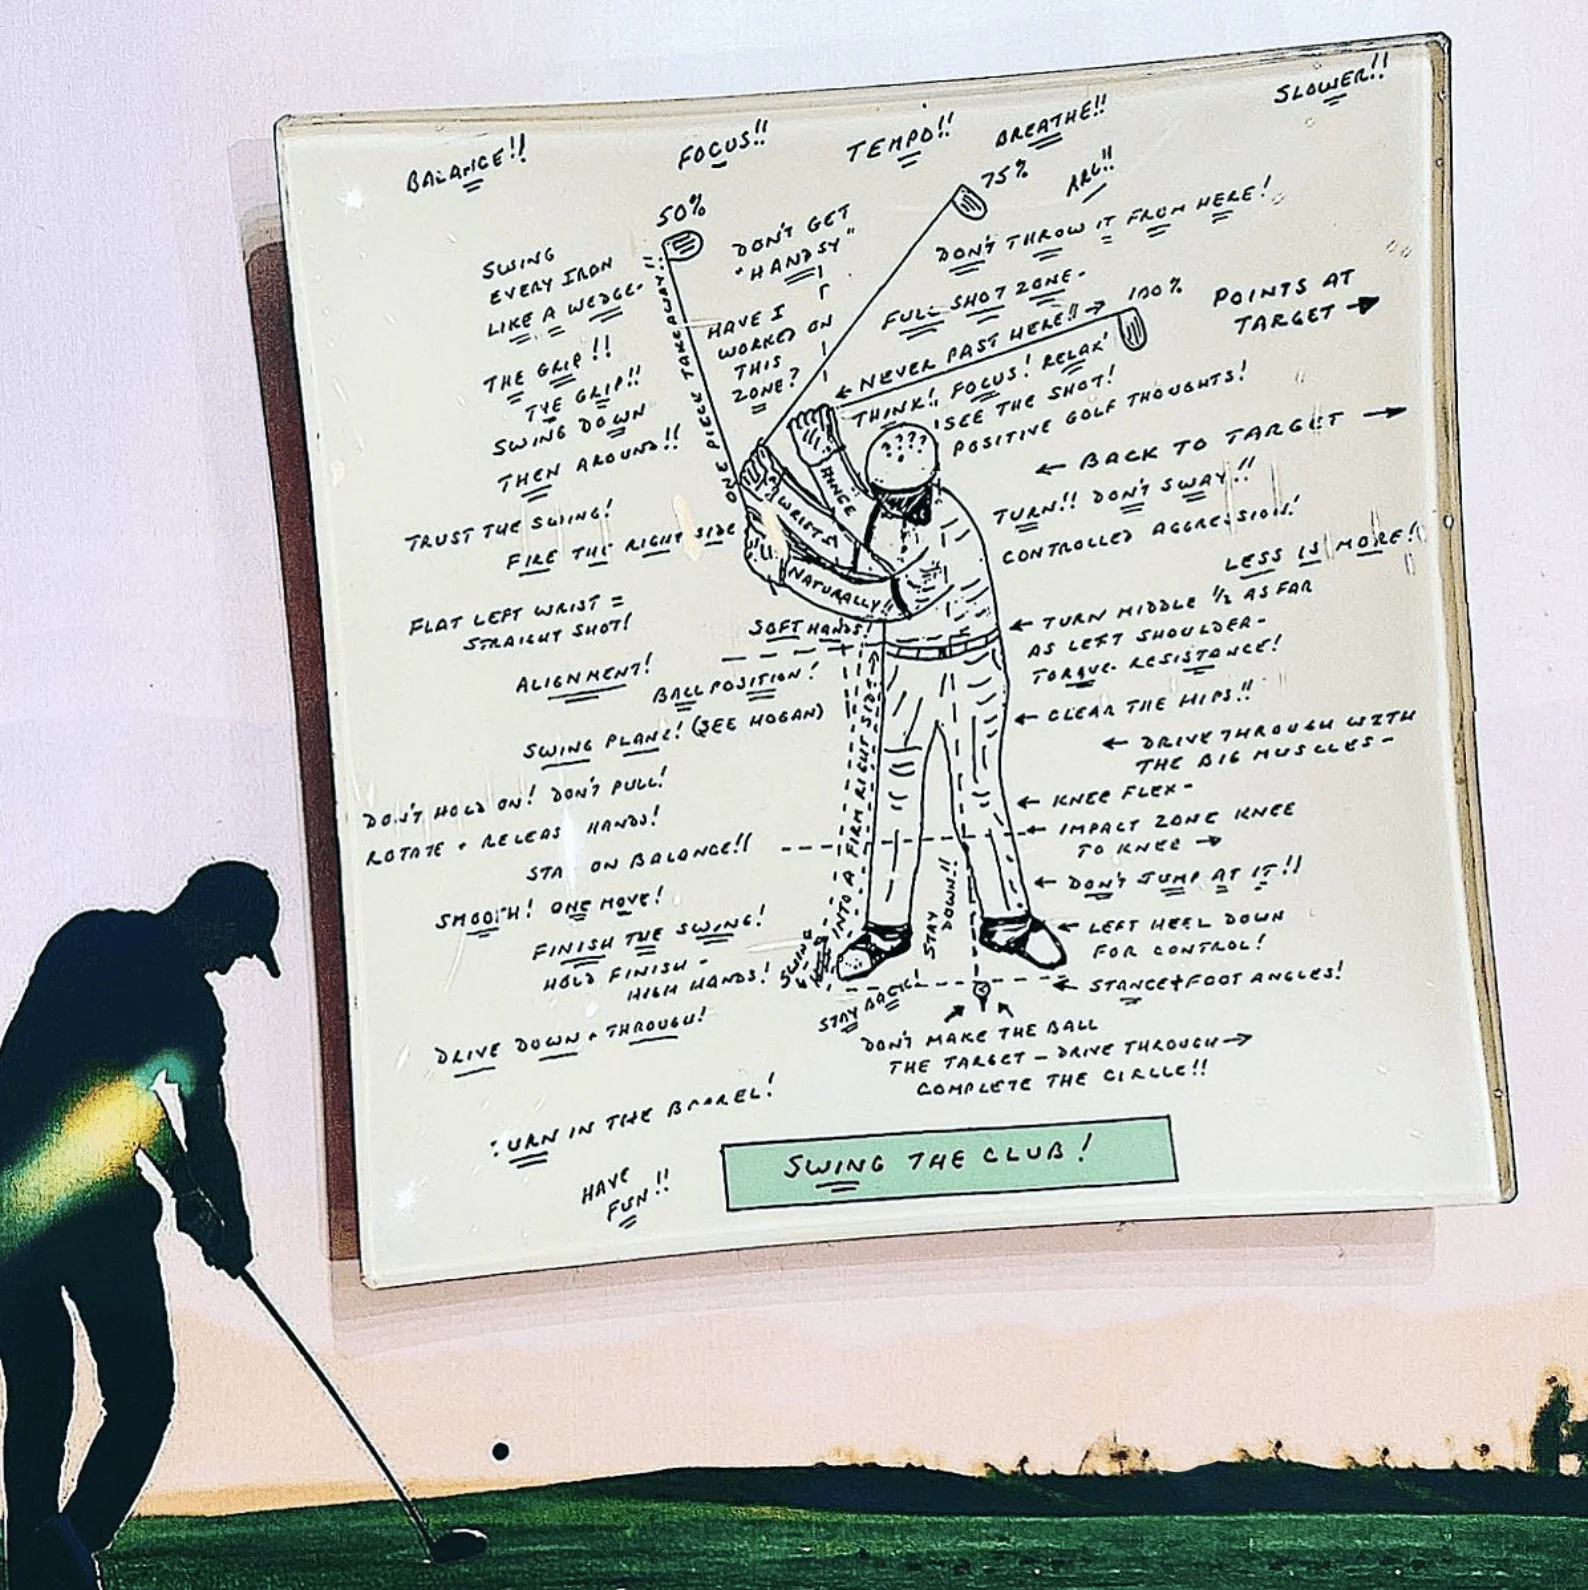 BALANCE!!
FOCUS!!
TEMPO!!
BREATHE!!
SLOWER!!
50%
75%
ARC!!
SWING
EVERY IRON
LIKE A WEDGE-
DON'T GET
"HANDSY"
DON'T THROW IT FROM HERE!
FULL SHOT ZONE-
100%
POINTS AT
TARGET →
ONE PIECE TAKEAWAY!!
HAVE I
WORKED ON
THIS
ZONE?
← NEVER PAST HERE!! →
THE GRIP!!
THE GRIP!!
SWING DOWN
THEN AROUND!!
THINK!! FOCUS! RELAX!
SEE THE SHOT!
POSITIVE GOLF THOUGHTS!
????
← BACK TO TARGET →
TURN!! DON'T SWAY!!
CONTROLLED AGGRESSION!
LESS IS MORE!
HINGE
WRISTS
NATURALLY!!
TRUST THE SWING!
FIRE THE RIGHT SIDE
FLAT LEFT WRIST =
STRAIGHT SHOT!
SOFT HANDS!
← TURN MIDDLE 1/2 AS FAR
AS LEFT SHOULDER-
TORQUE- RESISTANCE!
ALIGNMENT!
BALL POSITION!
SWING PLANE! (SEE HOGAN)
← CLEAR THE HIPS!!
← DRIVE THROUGH WITH
THE BIG MUSCLES-
DON'T HOLD ON! DON'T PULL!
ROTATE + RELEAS HANDS!
STA ON BALANCE!!
← KNEE FLEX-
← IMPACT ZONE KNEE
TO KNEE →
← DON'T JUMP AT IT!!
SMOOTH! ONE MOVE!
FINISH THE SWING!
HOLD FINISH-
HIGH HANDS!
SWING
INTO A FIRM RIGHT SIDE
STAY
DOWN!!
← LEFT HEEL DOWN
FOR CONTROL!
← STANCE + FOOT ANGLES!
STAY BACK!
DRIVE DOWN + THROUGH!
DON'T MAKE THE BALL
THE TARGET - DRIVE THROUGH →
COMPLETE THE CIRCLE!!
TURN IN THE BARREL!
HAVE
FUN!!
SWING THE CLUB!